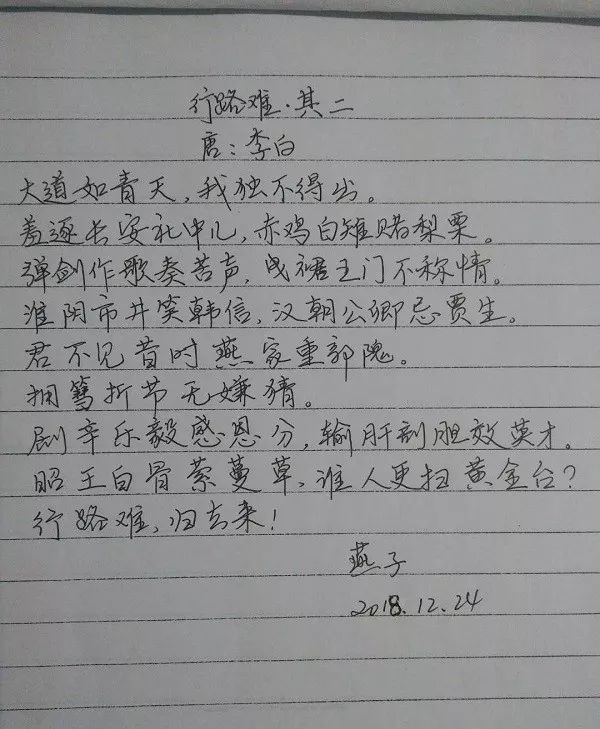 行路难·其二
唐:李白
大道如青天,我独不得出。
羞逐长安社中儿,赤鸡白雉赌梨栗。
弹剑作歌奏苦声,曳裾王门不称情。
淮阴市井笑韩信,汉朝公卿忌贾生。
君不见昔时燕家重郭隗。
拥篲折节无嫌猜。
剧辛乐毅感恩分,输肝剖胆效英才。
昭王白骨萦蔓草,谁人更扫黄金台?
行路难,归去来!
燕子
2018.12.24